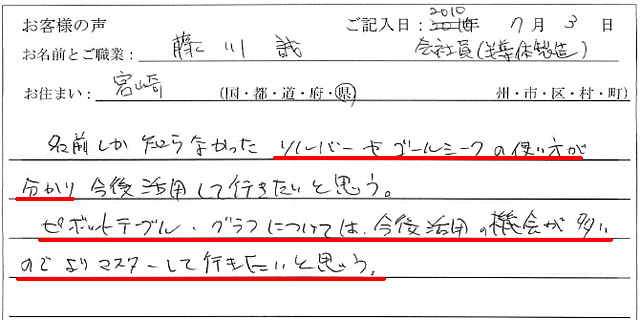 お客様の声 ご記入日:2010年 7月 3日
お名前とご職業: 藤川 誠 会社員(半導体製造)
お住まい: 宮崎 (国・都・道・府・県) 州・市・区・村・町)
名前しか知らなかった ソルバーやゴールシークの使い方が
分かり今後活用して行きたいと思う。
ピボットテーブル・グラフについては、今後活用の機会が多い
のでよりマスターして行きたいと思う。